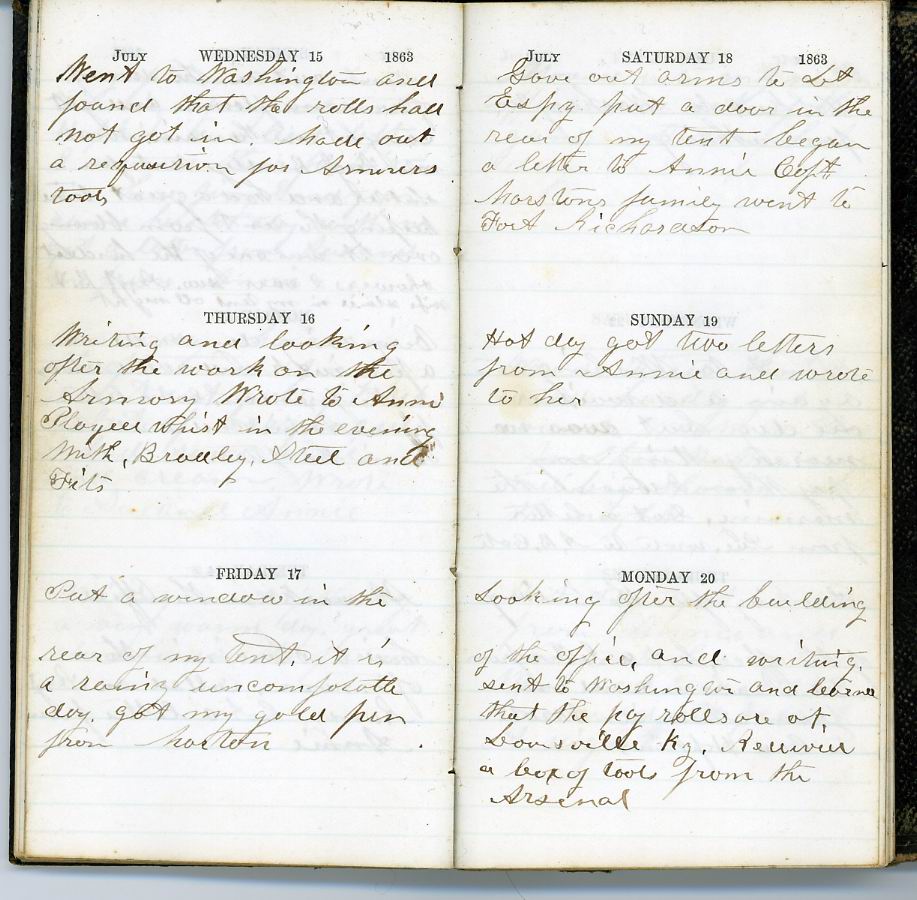 JULY WEDNESDAY 15 1863
Went to Washington and
found that the rolls had
not got in. Made out
a requisition for Armorers
tools
THURSDAY 16
Writing and looking
after the work on the
Armory Wrote to Annie
Played whist in the evening
With, Bradley, Steel and
Fits
FRIDAY 17
Put a window in the
rear of my tent, it is
a rainy uncomfotable
day. got my gold pen
from Morton
JULY SATURDAY 18 1863
Gave out arms to Lt
Espy put a door in the
rear of my tent began
a letter to Annie Capt
Marstons family went to
Fort Richardson
SUNDAY 19
Hot day got two letters
from Annie and wrote
to her
MONDAY 20
Looking after the building
of the office, and writing.
sent to Washington and learned
that the pay rolls are at
Louisville Ky.
a box of tools from the
Arsenal